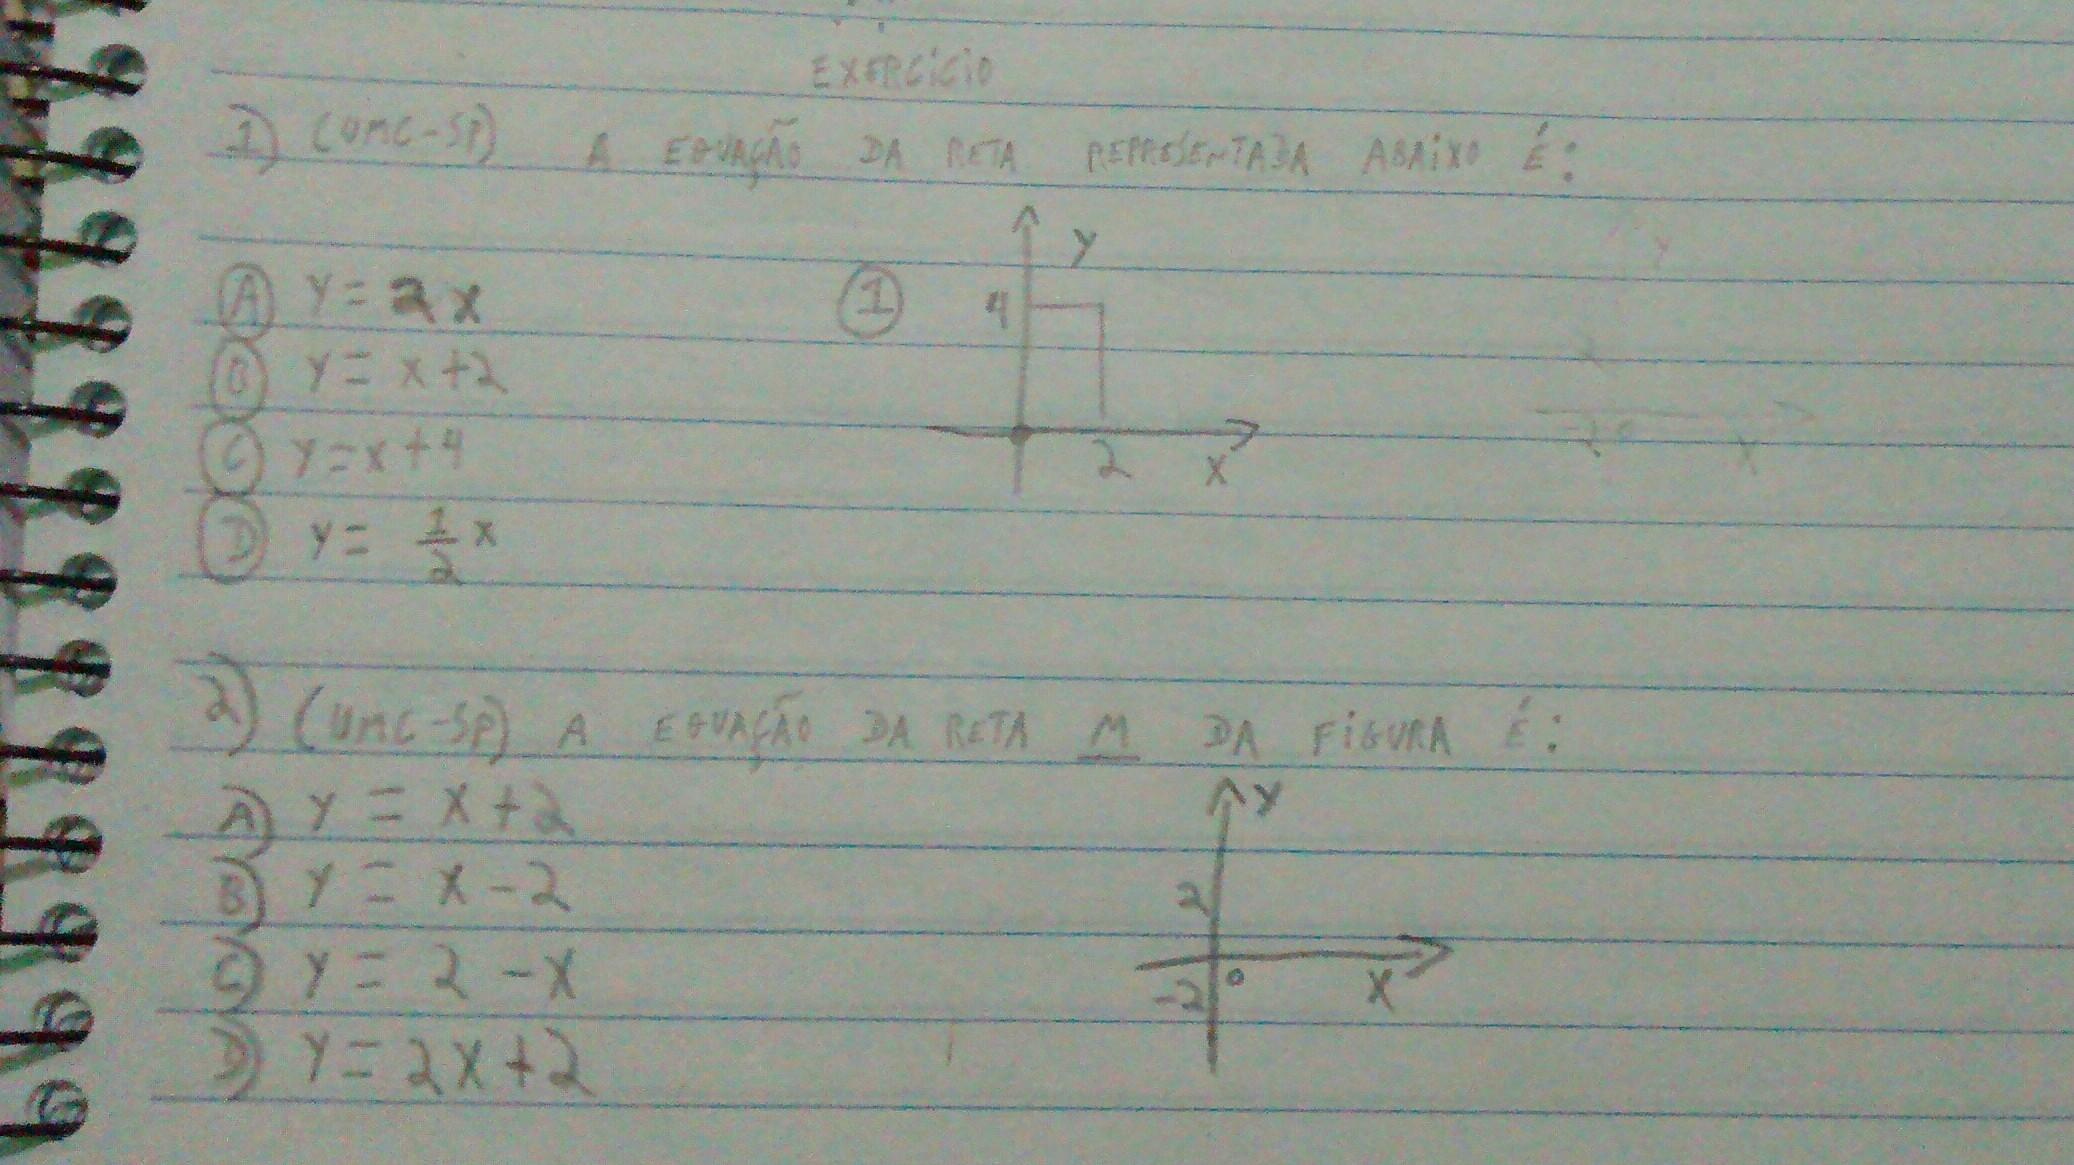 EXERCÍCIO
1) (UMC-SP) A EQUAÇÃO DA RETA REPRESENTADA ABAIXO É:
A y = 2x
B y = x+2
C y = x+4
D y = 1/2 x
1
y
4
2
x
2) (UMC-SP) A EQUAÇÃO DA RETA M DA FIGURA É:
A) y = x+2
B) y = x-2
C) y = 2-x
D) y = 2x+2
y
2
-2
0
x